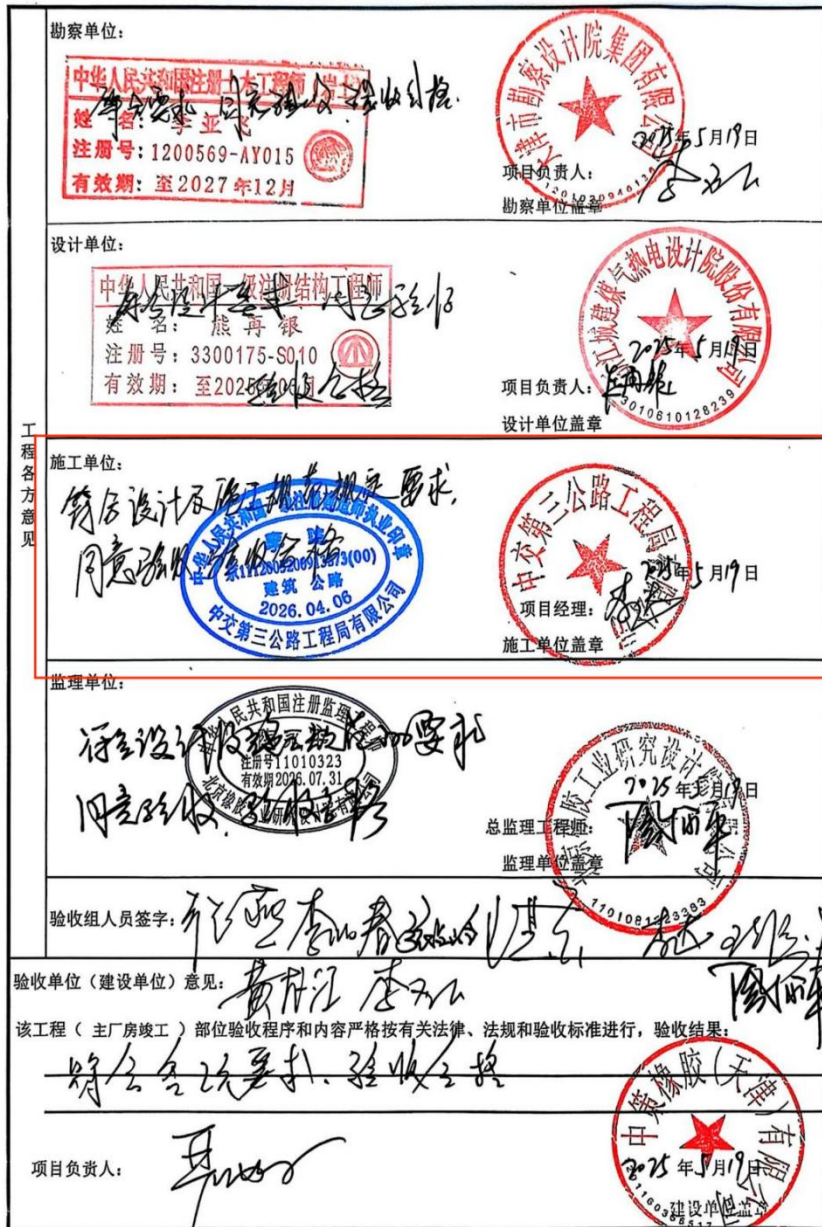 工程各方意见
勘察单位:
中华人民共和国注册土木工程师(岩土)
姓 名: 李亚
注册号:1200569-AY015
有效期: 至2027年12月
符合要求 同意验收 验收合格.
天津市勘察设计院集团有限公司
2025年5月19日
项目负责人:
勘察单位盖章
设计单位:
中华人民共和国一级注册结构工程师
姓 名: 熊再银
注册号: 3300175-S010
有效期: 至2025
符合设计要求 同意验收
验收合格
城建煤气热电设计院股份有限公司
2025年5月19日
项目负责人: 熊再银
设计单位盖章
3010610128239
施工单位:
符合设计及施工规范规定要求,
同意验收 验收合格
中华人民共和国一级注册建造师执业印章
(00)
建筑 公路
2026.04.06
中交第三公路工程局有限公司
中交第三公路工程局有限公司
2025年5月19日
项目经理:
施工单位盖章
监理单位:
中华人民共和国注册监理工程师
注册号11010323
有效期2026.07.31
符合设计及规范要求
同意验收, 验收合格
2025年5月19日
总监理工程师:
监理单位盖章
1101081
验收组人员签字:
验收单位(建设单位)意见:
该工程( 主厂房竣工 )部位验收程序和内容严格按有关法律、法规和验收标准进行,验收结果:
符合合同要求、验收合格
中策橡胶(天津)有限公司
项目负责人:
2025年5月19日
建设单位盖章